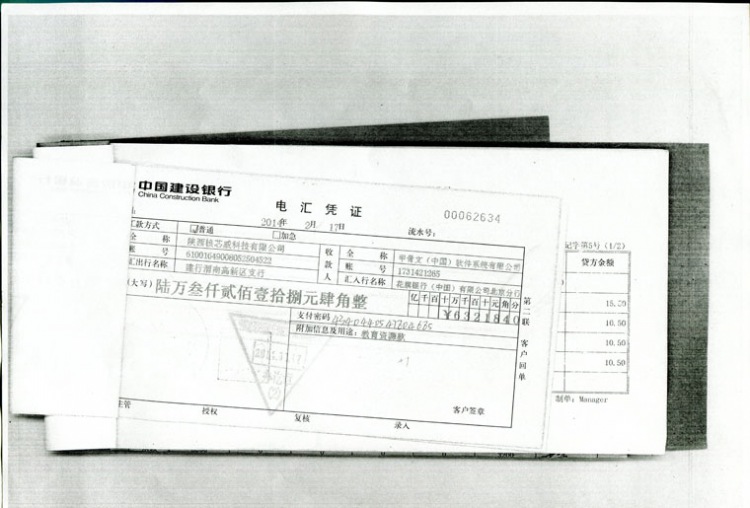 中国建设银行
China Construction Bank
电汇凭证
00062634
2014年 2月 17日
流水号：
汇款方式 普通 加急
全称 陕西核芯威科技有限公司
收款人 全称 毕普文（中国）软件系统有限公司
账号 61001649006052504522
账号 1731421265
汇出行名称 建行渭南高新区支行
汇入行名称 花旗银行（中国）有限公司北京分行
(大写) 陆万叁仟贰佰壹拾捌元肆角整
亿千百十万千百十元角分
¥6321840
支付密码
附加信息及用途：教育资源款
客户签章
主管 授权 复核 录入
第二联 客户回单
记字第5号 (1/2)
贷方金额
10.50
10.50
10.50
制单：Manager